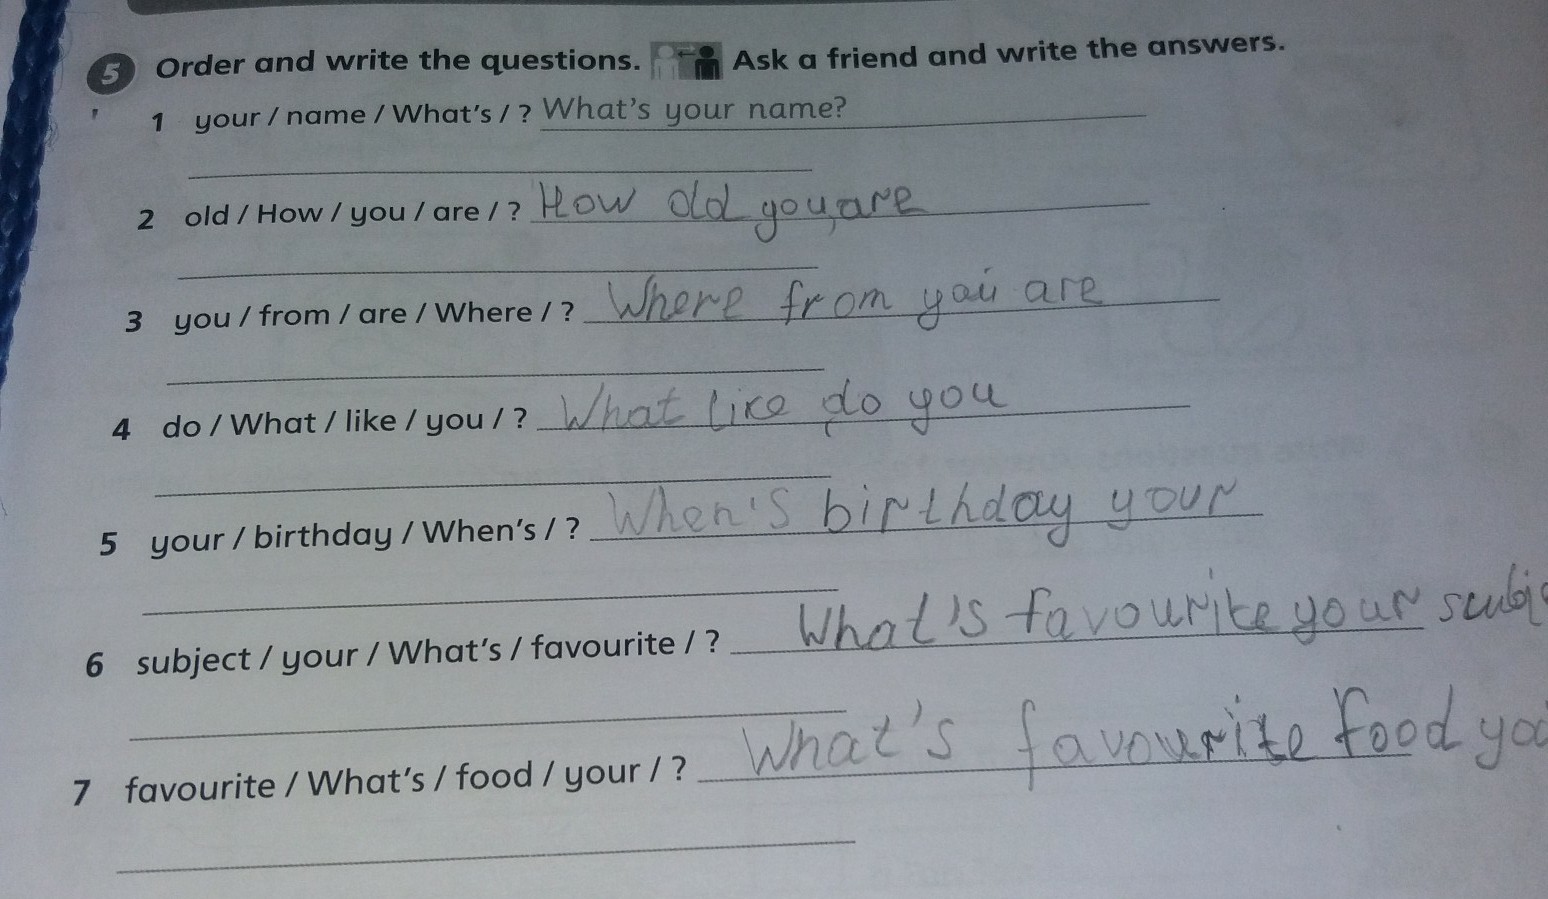 5 Order and write the questions. Ask a friend and write the answers.
1 your / name / What's / ? What's your name?
2 old / How / you / are / ? How old you are
3 you / from / are / Where / ? Where from you are
4 do / What / like / you / ? What like do you
5 your / birthday / When's / ? When's birthday your
6 subject / your / What's / favourite / ? What's favourite your
7 favourite / What's / food / your / ? What's favourite food